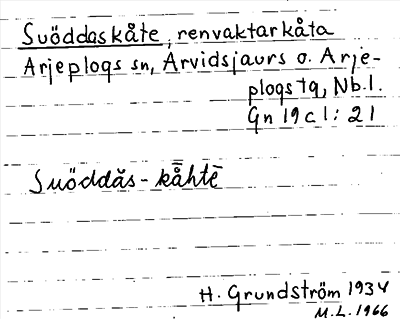 Suöddaskåte, renvaktarkåta
Arjeplogs sn, Arvidsjaurs o. Arje-
plogs tg, Nb.l.
Gn 19 c 1: 21
Suöddǎs - kå̄htē
H. Grundström 1934
M.L. 1966